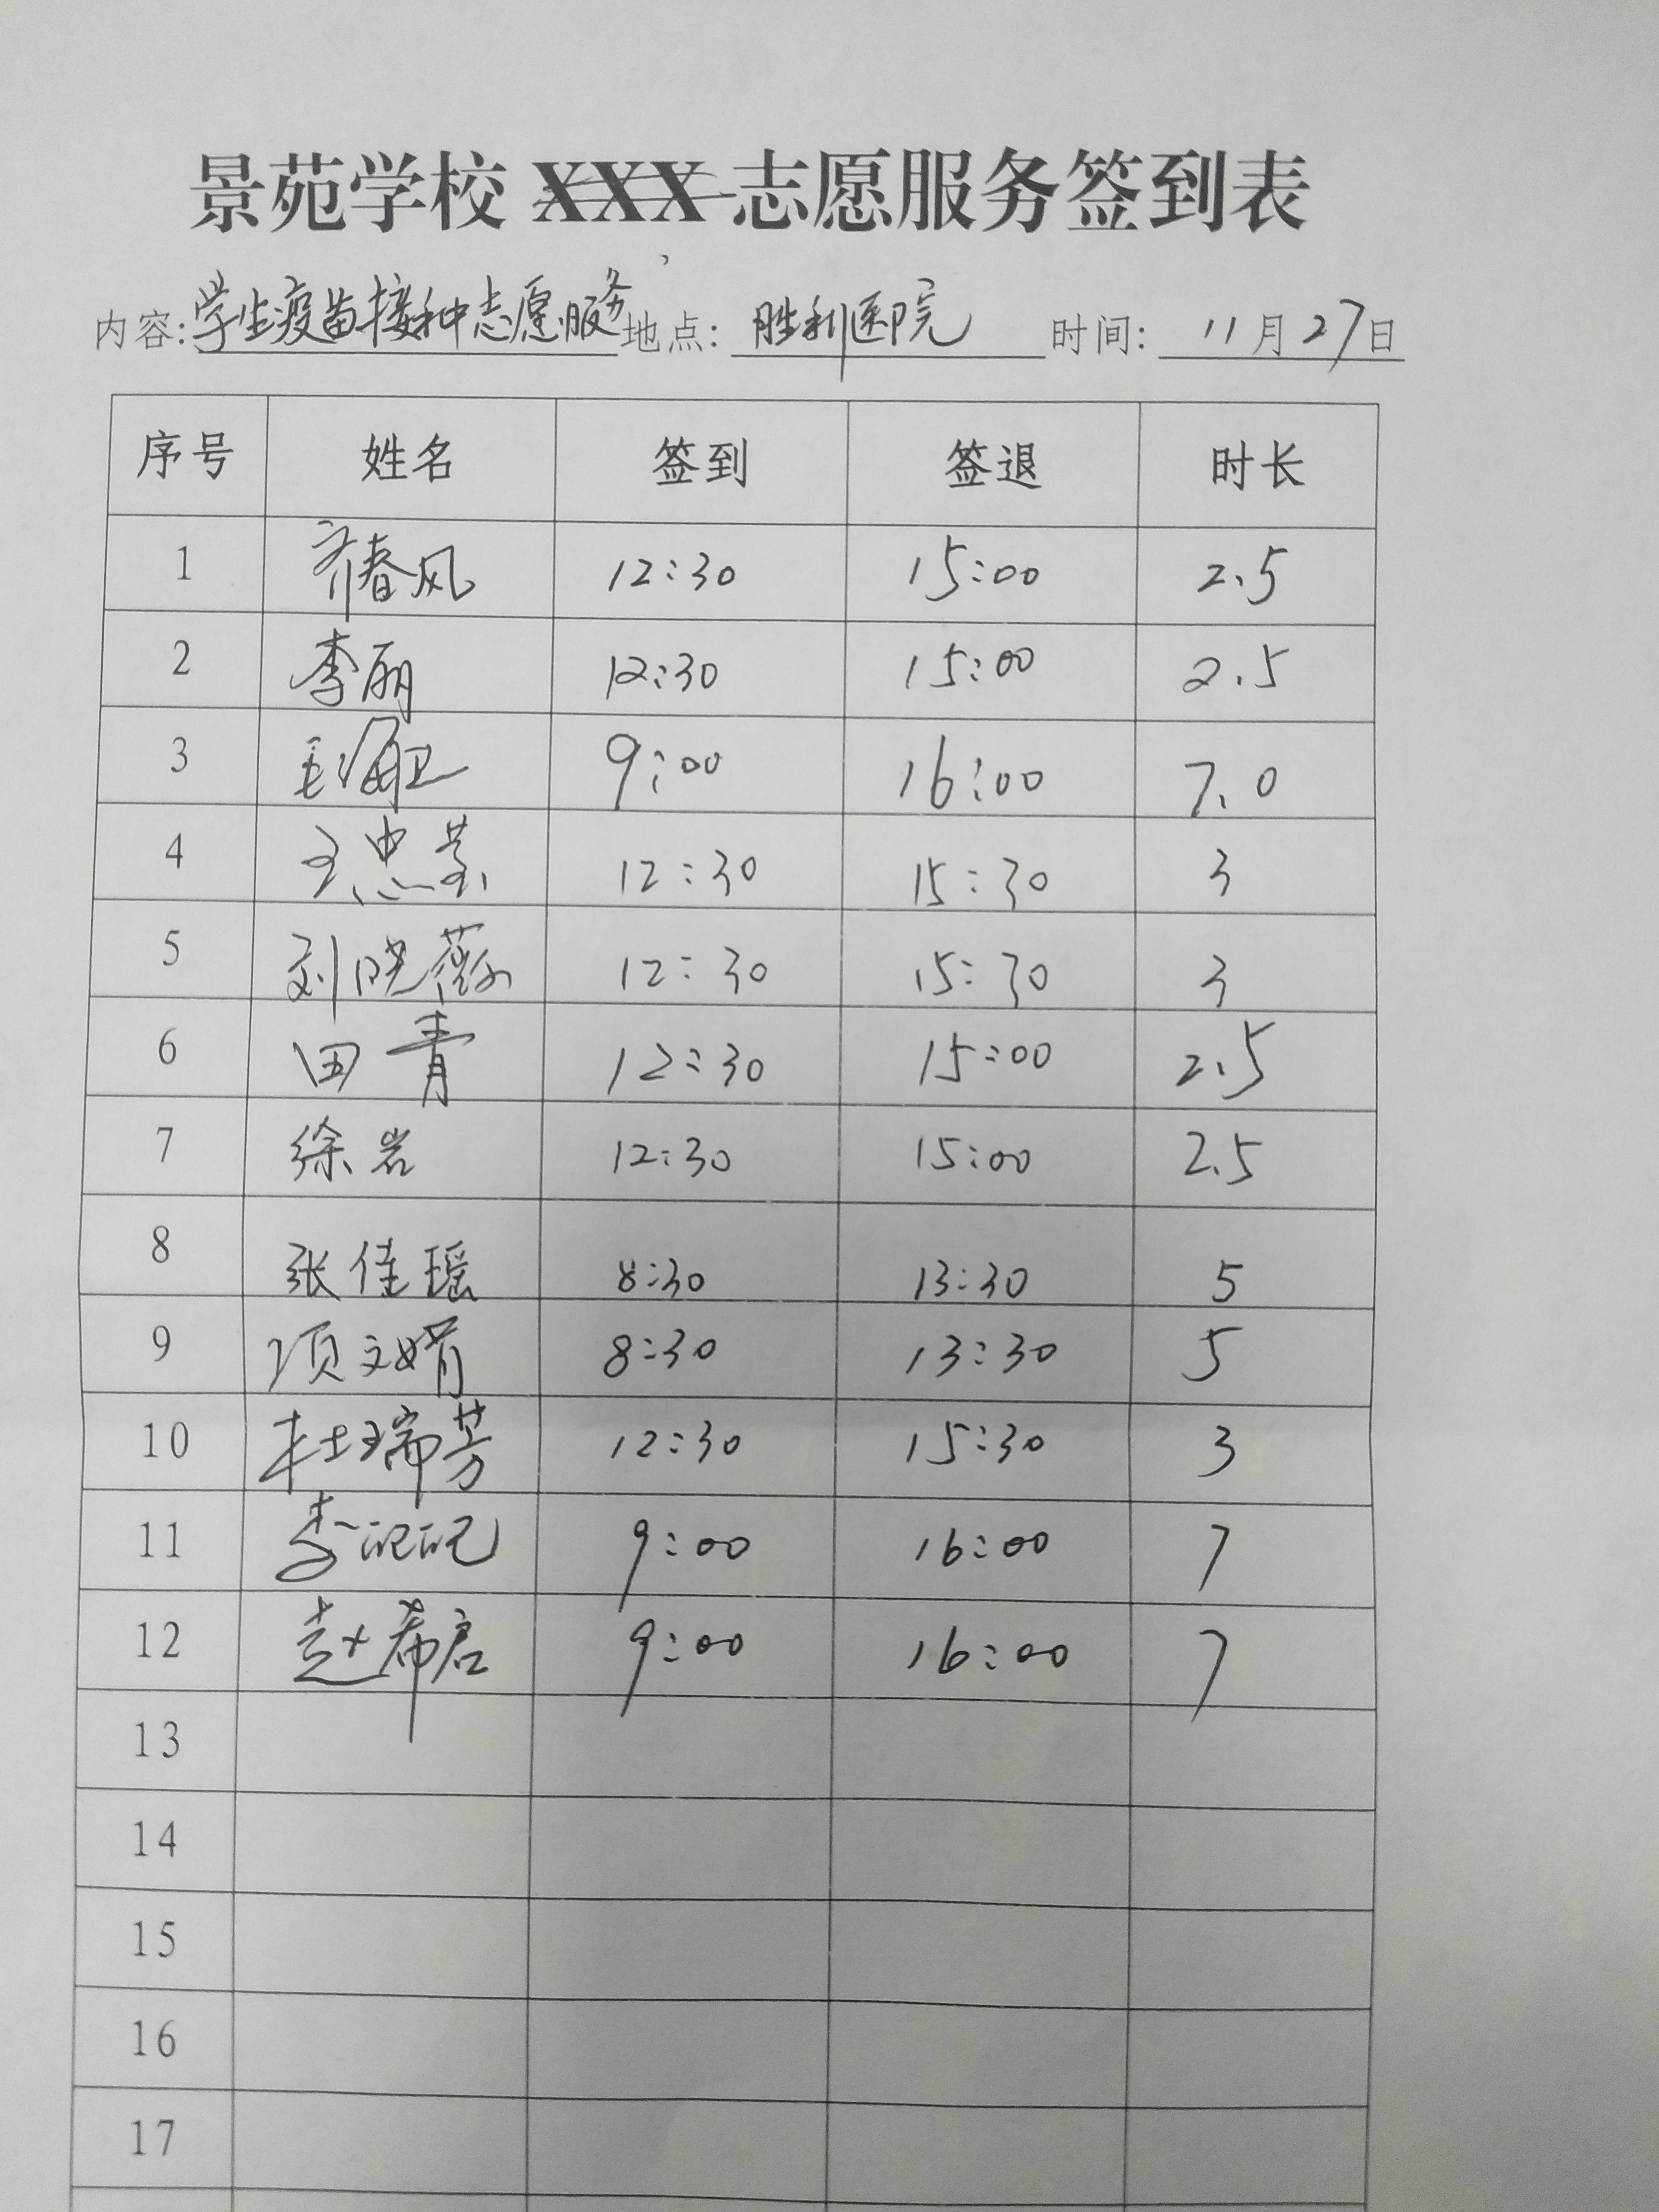 景苑学校 XXX 志愿服务签到表
内容:学生疫苗接种志愿服务 地点: 胜利医院 时间: 11月27日
序号 姓名 签到 签退 时长
1 齐春风 12:30 15:00 2.5
2 李丽 12:30 15:00 2.5
3 9:00 16:00 7.0
4 12:30 15:30 3
5 刘晓薇 12:30 15:30 3
6 田青 12:30 15:00 2.5
7 徐岩 12:30 15:00 2.5
8 张佳瑶 8:30 13:30 5
9 项文婧 8:30 13:30 5
10 杜瑞芳 12:30 15:30 3
11 9:00 16:00 7
12 赵希君 9:00 16:00 7
13
14
15
16
17